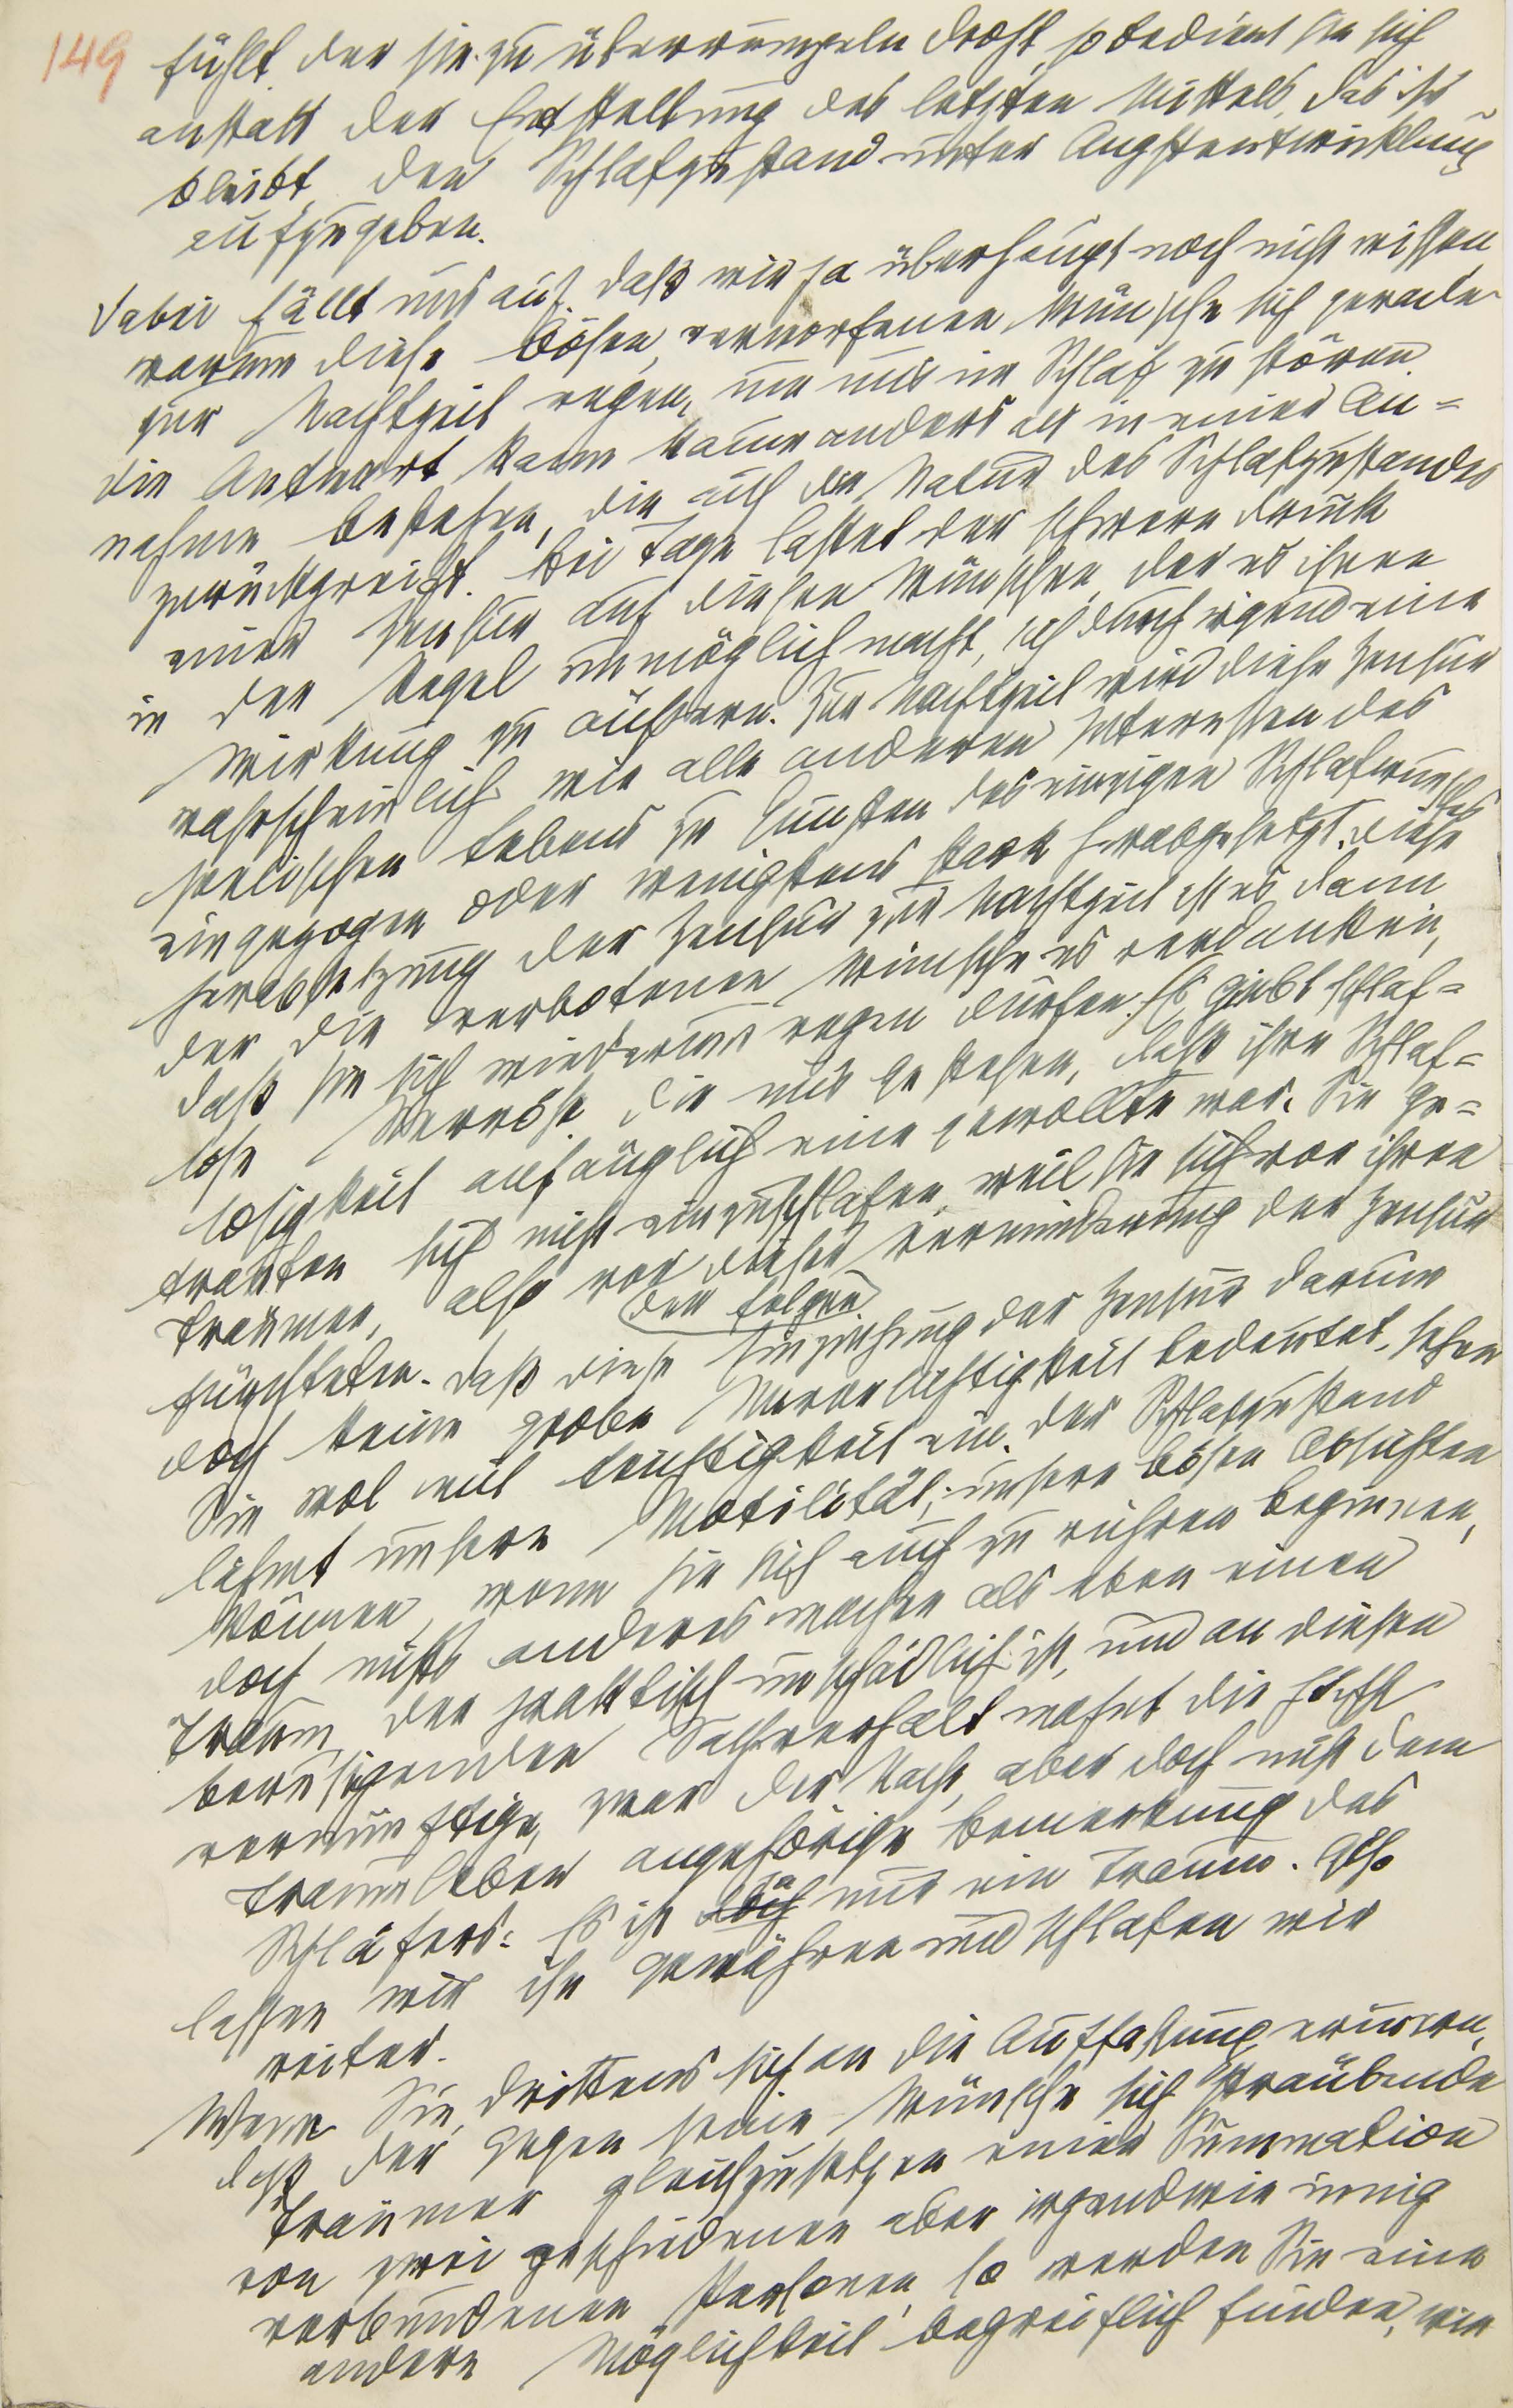 149
fühlt, der sie zu überrumpeln droht, so bedient sie sich
anstatt der Entstellung des letzten Mittels, das ihr
bleibt, den Schlafzustand unter Angstentwicklung
aufzugeben.
Dabei fällt uns auf, daß wir ja überhaupt noch nicht wissen
warum diese bösen, verworfenen Wünsche sich gerade
zur Nachtzeit regen, um uns im Schlaf zu stören.
Die Antwort kann kaum anders als in einer An=
nahme bestehen, die auf die Natur des Schlafzustandes
zurückgreift. Bei Tage lastet der schwere Druck
einer Zensur auf diesen Wünschen, der es ihnen
in der Regel unmöglich macht, sich durch irgend eine
Wirkung zu äußern. Zur Nachtzeit wird diese Zensur
wahrscheinlich wie alle anderen Interessen des
seelischen Lebens zu Gunsten des einzigen Schlafwunsches
eingezogen oder wenigstens stark herabgesetzt. Diese
Herabsetzung der Zensur zur Nachtzeit ist es dann
der die verbotenen Wünsche es verdanken,
daß sie sich wiederum regen dürfen. Es giebt schlaf=
lose Nervöse, die uns gestehen, daß ihre Schlaf=
losigkeit anfänglich eine gewollte war. Sie ge=
trauten sich nicht einzuschlafen, weil sie sich vor ihren
Träumen, also vor dieser Verminderung der Zensur
den Folgen
fürchteten. Daß diese Einziehung der Zensur darum
doch keine grobe Unvorsichtigkeit bedeutet, sehen
Sie wol mit Leichtigkeit ein. Der Schlafzustand
lähmt unsere Motilität; unsere bösen Absichten
können, wenn sie sich auch zu rühren beginnen,
doch nichts anderes machen als eben einen
Traum, der praktisch unschädlich ist, und an diesen
beruhigenden Sachverhalt mahnt die höchst
vernünftige, zwar der Nacht, aber doch nicht dem
Traumleben angehörige Bemerkung des
Schläfers: Es ist doch ja nur ein Traum. Also
lassen wir ihn gewähren und schlafen wir
weiter.
Wenn Sie drittens sich an die Auffassung erinnern,
daß der gegen seine Wünsche sich sträubende
Träumer gleichzusetzen einer Summation
von zwei geschiedenen aber irgendwie innig
verbundenen Personen, so werden Sie eine
andere Möglichkeit begreiflich finden, wie